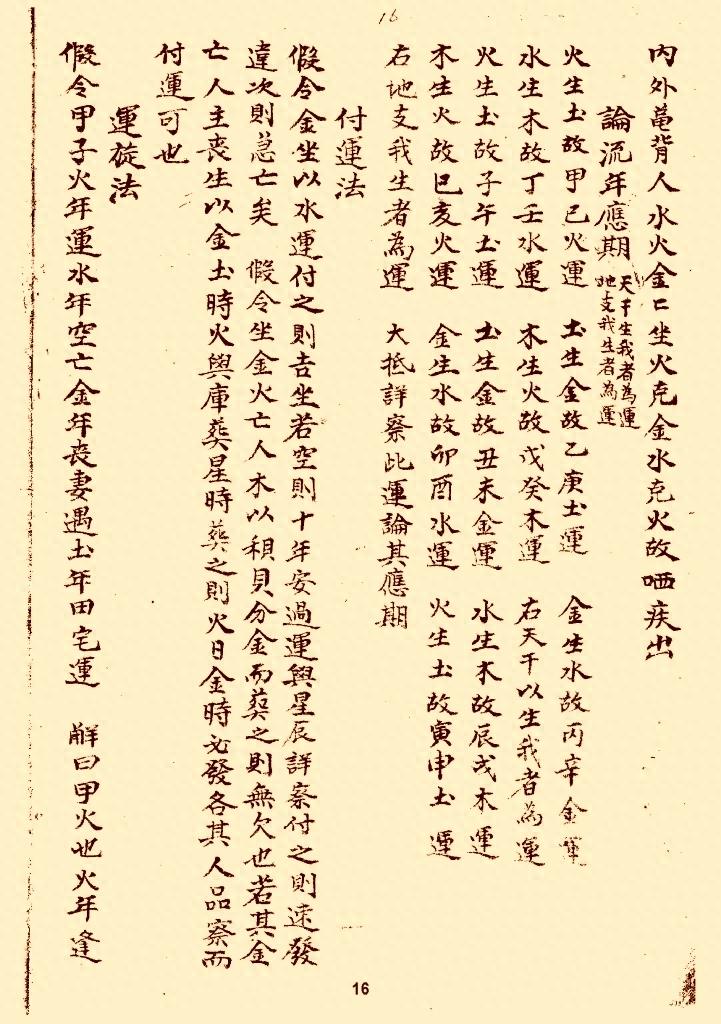 16
內外黽背人水火金亡坐火克金水克火故哂疾出
論流年應期 天干生我者為運 地支我生者為運
火生土故甲己火運 土生金故乙庚土運 金生水故丙辛金運
水生木故丁壬水運 木生火故戊癸木運 右天干以生我者為運
火生土故子午土運 土生金故丑未金運 水生木故辰戌木運
木生火故巳亥火運 金生水故卯酉水運 火生土故寅申土運
右地支我生者為運 大抵詳察此運論其應期
付運法
假令金坐以水運付之則吉坐若空則十年安過運與星辰詳察付之則速發
違次則急亡矣 假令坐金火亡人木以稛貝分金而葬之則無欠也若其金
亡人主喪生以金土時火與庫葬星時葬之則火日金時必發各其人品察而
付運可也
運旋法
假令甲子火年運水年空亡金年喪妻遇土年田宅運 解曰甲火也火年逢
16